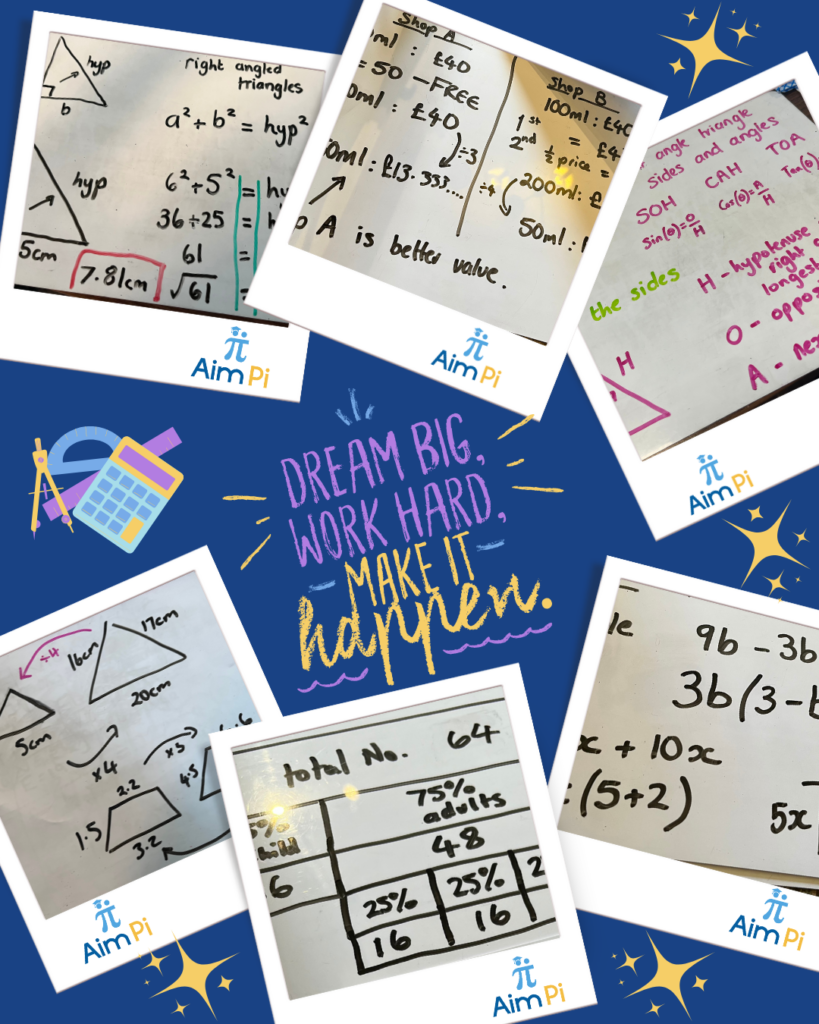 right angled
triangles
hyp
b
a² + b² = hyp²
hyp
6² + 5² =
36 + 25 =
61 =
5cm
7.81cm
√61
Aim Pi
Shop A
ml : £40
= 50 - FREE
0ml : £40
÷3
0ml : £13.333....
A is better value.
Shop B
100ml : £40
1st = £4
2nd ½ price =
÷4
200ml : £
50ml :
Aim Pi
angle triangle
sides and angles
SOH CAH TOA
Sin(θ)=O/H Cos(θ)=A/H Tan(θ)
the sides
H - hypotenuse
right
longest
O - oppos
A - ne
H
Aim Pi
DREAM BIG,
WORK HARD,
MAKE IT
happen.
÷4
16cm
17cm
20cm
5cm
x4
x3
2.2
4.5
1.5
3.2
Aim Pi
total No. 64
75%
adults
48
6
25% 25% 2
16 16
Aim Pi
le
9b - 3b
3b(3-b
x + 10x
(5+2)
5x
Aim Pi